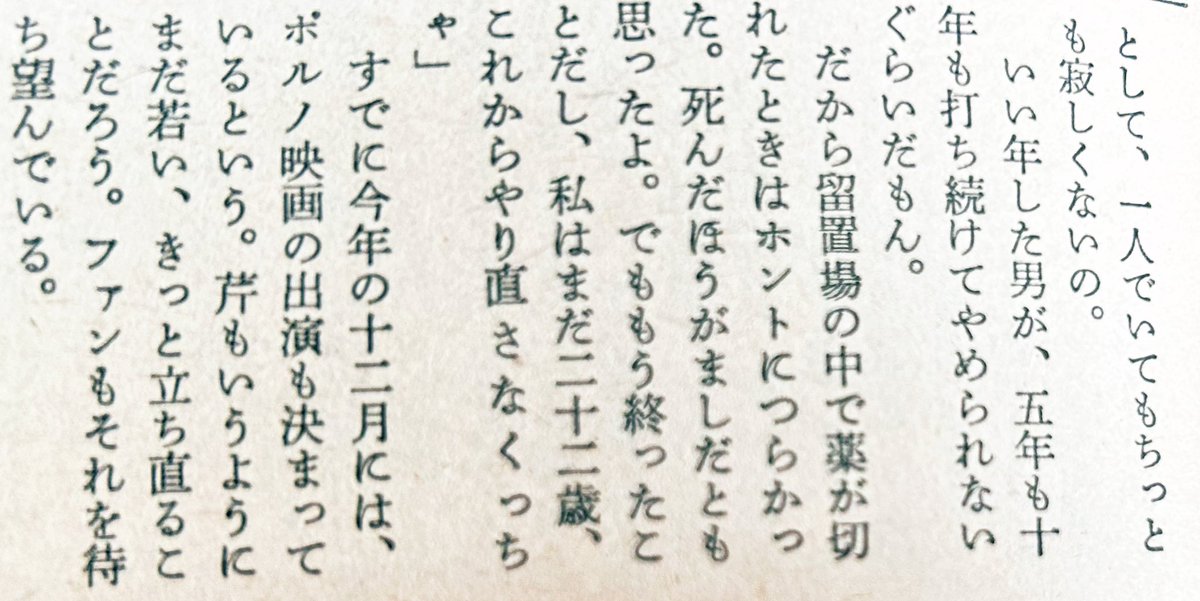 として、一人でいてもちっと
も寂しくないの。
いい年した男が、五年も十
年も打ち続けてやめられない
ぐらいだもん。
だから留置場の中で薬が切
れたときはホントにつらかっ
た。死んだほうがましだとも
思ったよ。でももう終ったこ
とだし、私はまだ二十二歳、
これからやり直さなくっち
ゃ」
すでに今年の十二月には、
ポルノ映画の出演も決まって
いるという。芹もいうように
まだ若い、きっと立ち直るこ
とだろう。ファンもそれを待
ち望んでいる。